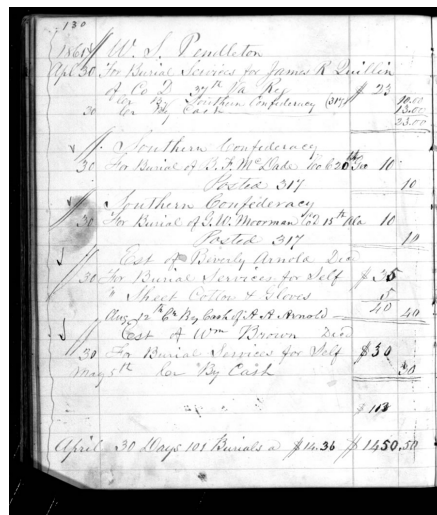 130
1861 W. S. Pendleton
Apl 30 For Burial Services for James R Quillin
of Co D 37th Va Reg $ 23
Cr By Southern Confederacy (317) 10.00
30 Cr By Cash 13.00
23.00
Southern Confederacy
30 For Burial of B. F. McDade Co C 20th Geo 10
Posted 317 10
Southern Confederacy
30 For Burial of G. W. Moorman Co D 15th Ala 10
Posted 317 10
Est of Beverly Arnold Decd
30 For Burial Services for Self $ 35
" Sheet Cotton & Gloves 5
40
Aug 12th Cr By Cash of A A Arnold 40
Est of Wm Brown Decd
30 For Burial Services for Self $ 30
May 5th Cr By Cash 30
$ 113
April 30 Days 101 Burials a $14.36 $1450.50